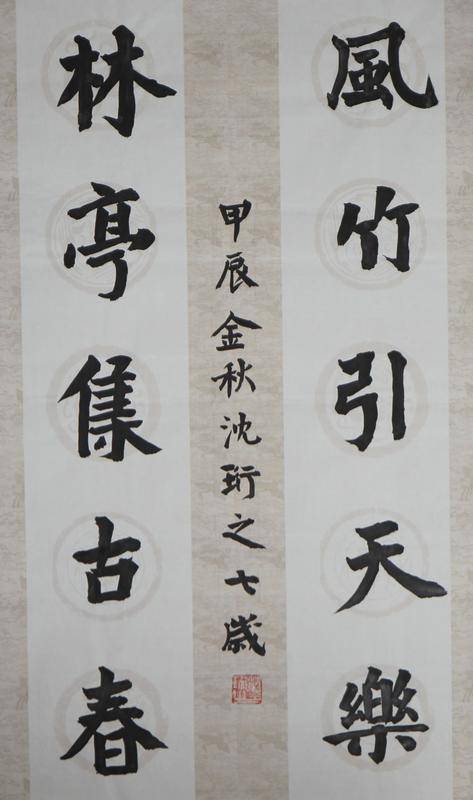 風竹引天樂
林亭集古春
甲辰金秋沈珩之七歲